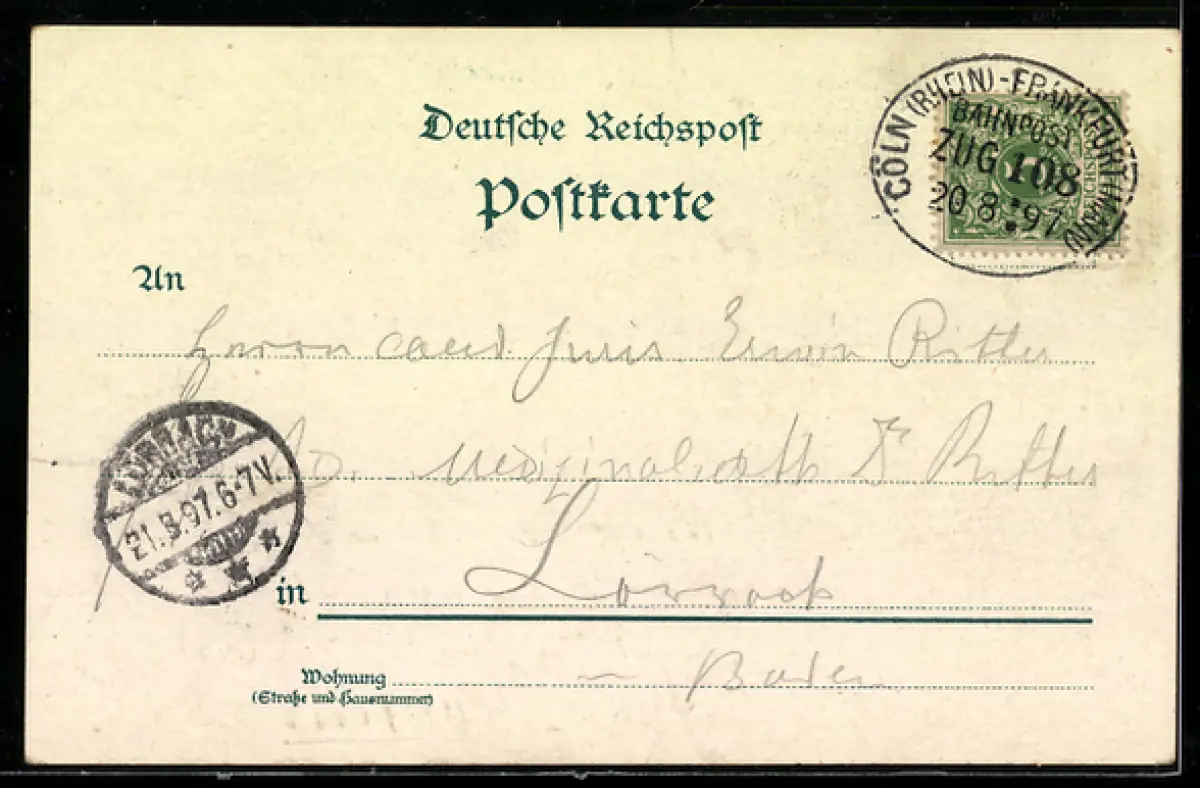 Deutsche Reichspost
Postkarte
CÖLN (RHEIN)-FRANKFURT (MAIN)
BAHNPOST
ZUG 108
20 8 97
An
Herrn cand. juris. Erwin Ritter
Medizinalrath Dr Ritter
LÖRRACH
21.8.97.6-7V.
in Lörrach
Wohnung
Baden
(Straße und Hausnummer)